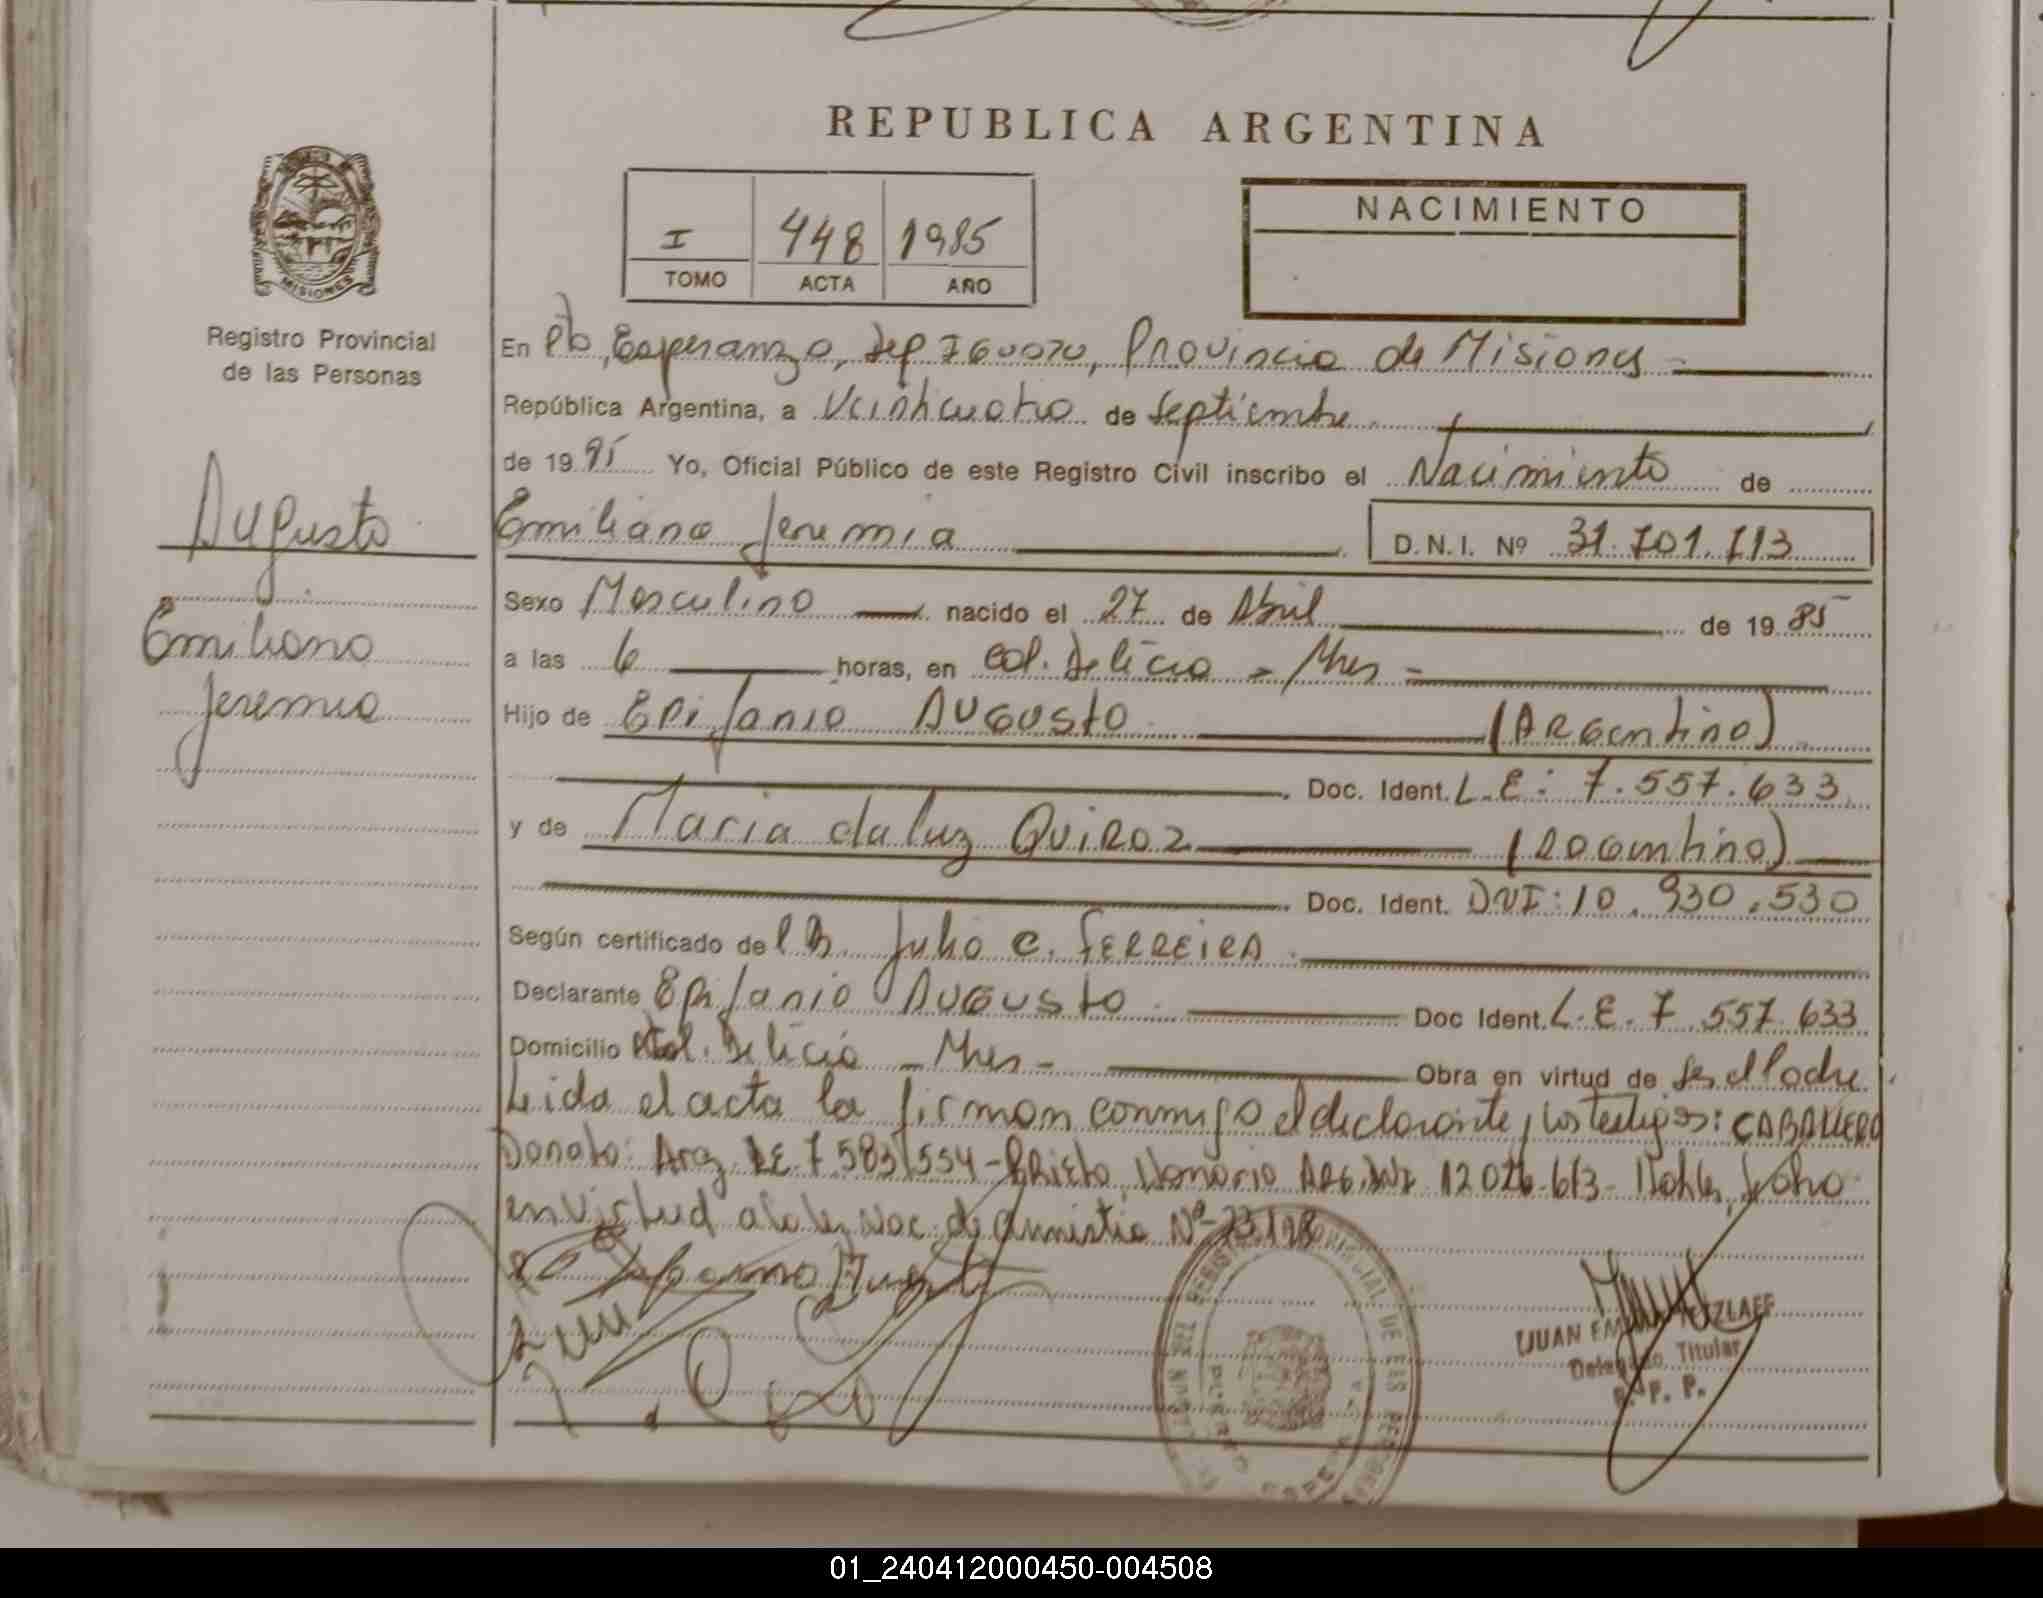 REPUBLICA ARGENTINA
MISIONES
Registro Provincial
de las Personas
I 448 1985
TOMO ACTA AÑO
NACIMIENTO
En Pto, Esperanza, Dep Iguazu, Provincia de Misiones
República Argentina, a Veinticuatro de Septiembre
de 19 85 Yo, Oficial Público de este Registro Civil inscribo el Nacimiento de
Augusto
Emiliano
Jeremia
Emiliano Jeremia D.N.I. Nº 31.701.713
Sexo Masculino nacido el 27 de Abril de 19 85
a las 6 horas, en Col. Delicia - Mnes -
Hijo de Epifanio AUGUSTO (Argentino)
Doc. Ident. L.E: 7.557.633
y de Maria da luz QUIROZ (Argentina)
Doc. Ident. DNI: 10.930.530
Según certificado de Julio C. FERREIRA
Declarante Epifanio AUGUSTO Doc Ident. L.E. 7 557 633
Domicilio Col. Delicia - Mnes - Obra en virtud de ser el Padre
Leida el acta la firman conmigo el declarante y los testigos: CABALLERO
Donato: Arg. LE. 7 583 554 - Prieto, Honorio ARG. DNI 12 026.613 -
en virtud a la ley Nac. de Amnistia Nº 23.198
JUAN
Delegado Titular
R. P. P.
01_240412000450-004508